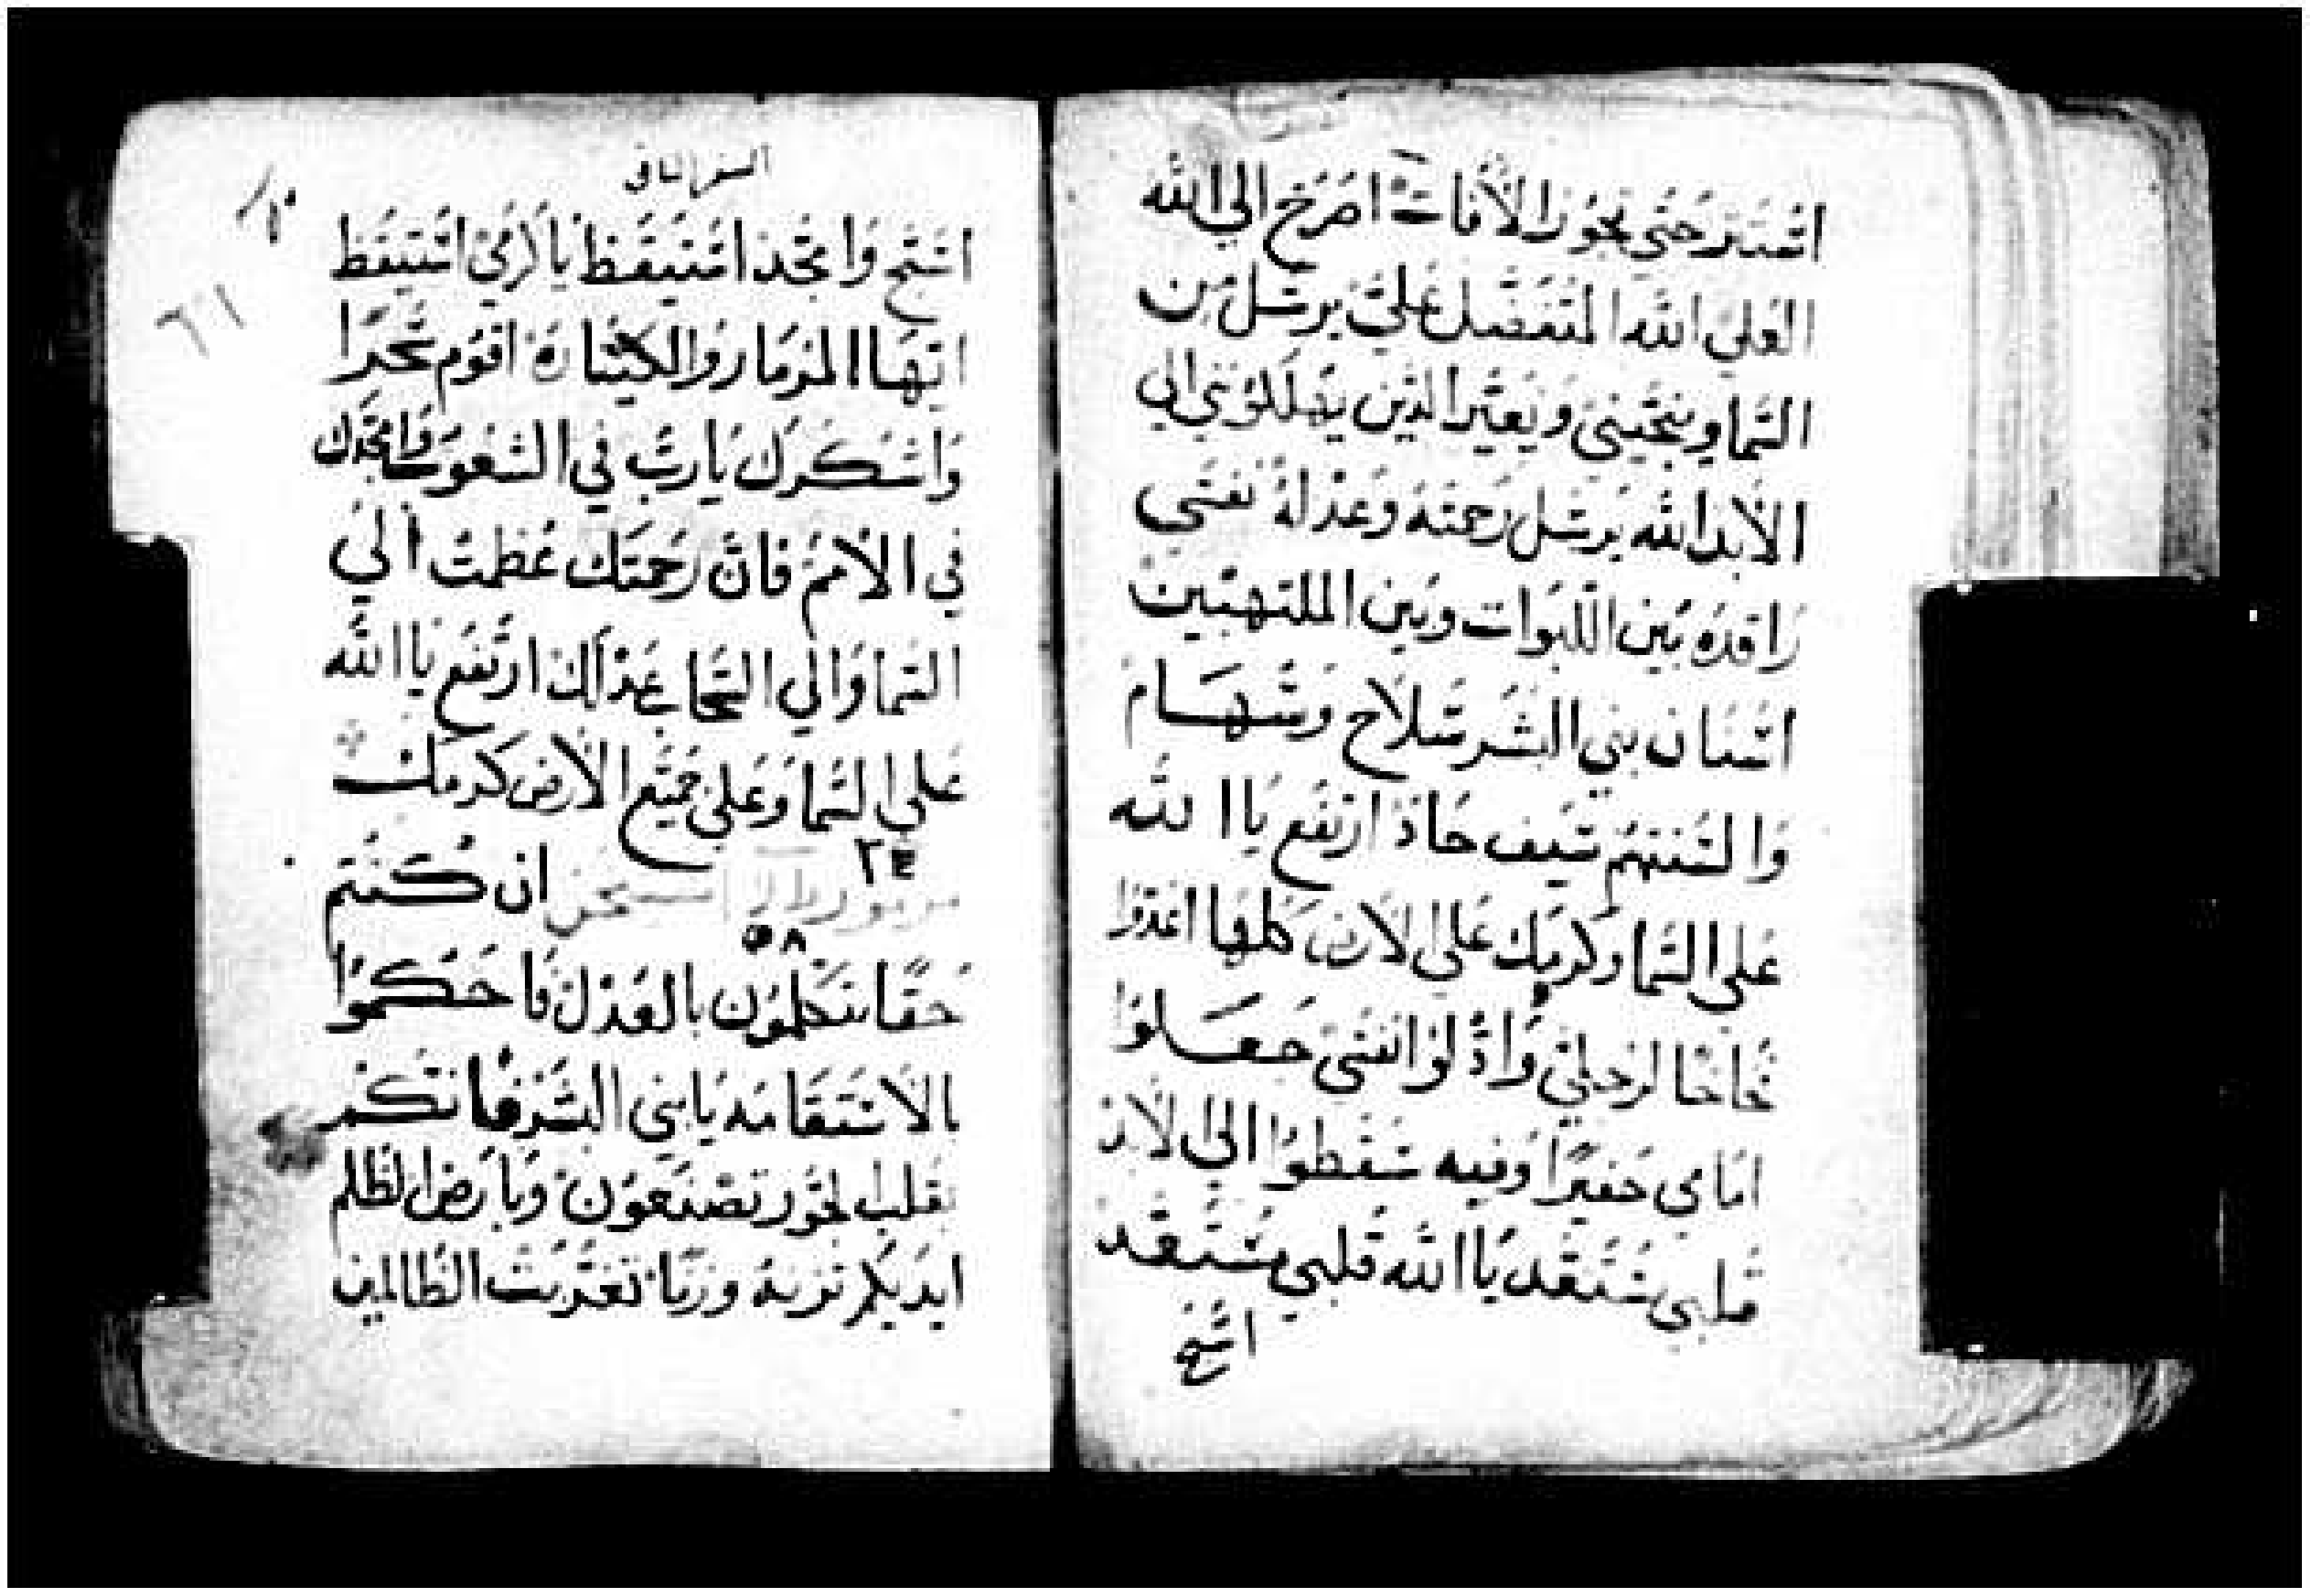 استتر حتى تجوز الافات اصرخ الى الله
العلي الله المتفضل علي يرسل من
السما وينجيني ويعير الذين يهللوني الى
الابد الله يرسل رحمته وعدله نفسي
راقده بين اللبوات وبين الملتهبين
اسنان بني البشر سلاح وسهام
والسنتهم سيف حاد ارتفع يا الله
على السما وكرمك على الارض كلها اعدوا
فخاخا لرجلي واذلوا نفسي جعلوا
امامي حفيرا وفيه سقطوا الى الابد
قلبي مستعد يا الله قلبي مستعد
اسبح
السفر الثاني
١٠
٦١
اسبح وامجد استيقظ يا كرمي استيقظ
ايها المزمار والكيثاره اقوم سحرا
واشكرك يا رب في الشعوب وامجدك
في الامم فان رحمتك عظمت الى
السما والى السحاب عدلك ارتفع يا الله
على السما وعلى جميع الارض كرمك
٢٤
ان كنتم
٥٨
حقا تتكلمون بالعدل فاحكموا
بالاستقامه يا بني البشر فانكم
بقلب الجور تصنعون وبارض الظلم
ايديكم تزينه وزيا تغربت الظالمين